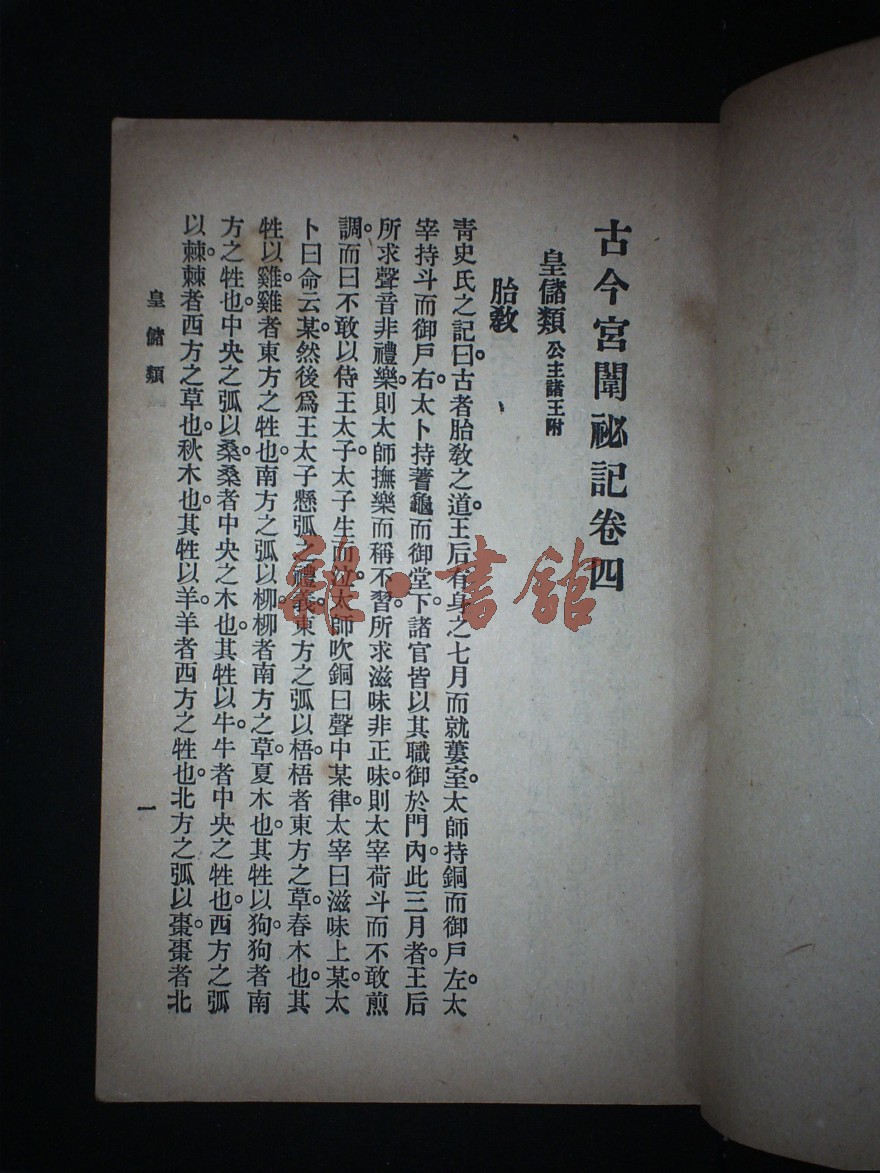 古今宮闈祕記卷四
皇儲類 公主諸王附
胎敎
靑史氏之記曰。古者胎敎之道。王后有身之七月而就蔞室。太師持銅而御戶左。太
宰持斗而御戶右。太卜持蓍龜而御堂下。諸官皆以其職御於門內。此三月者。王后
所求聲音非禮樂。則太師撫樂而稱不習。所求滋味非正味。則太宰荷斗而不敢煎
調。而曰不敢以侍王太子。太子生而泣。太師吹銅曰聲中某律。太宰曰滋味上某。太
卜曰命云某。然後爲王太子懸弧之禮義。東方之弧以梧。梧者東方之草。春木也。其
牲以雞。雞者東方之牲也。南方之弧以柳。柳者南方之草。夏木也。其牲以狗。狗者南
方之牲也。中央之弧以桑。桑者中央之木也。其牲以牛。牛者中央之牲也。西方之弧
以棘。棘者西方之草也。秋木也。其牲以羊。羊者西方之牲也。北方之弧以棗。棗者北
皇儲類
一
雜·書館